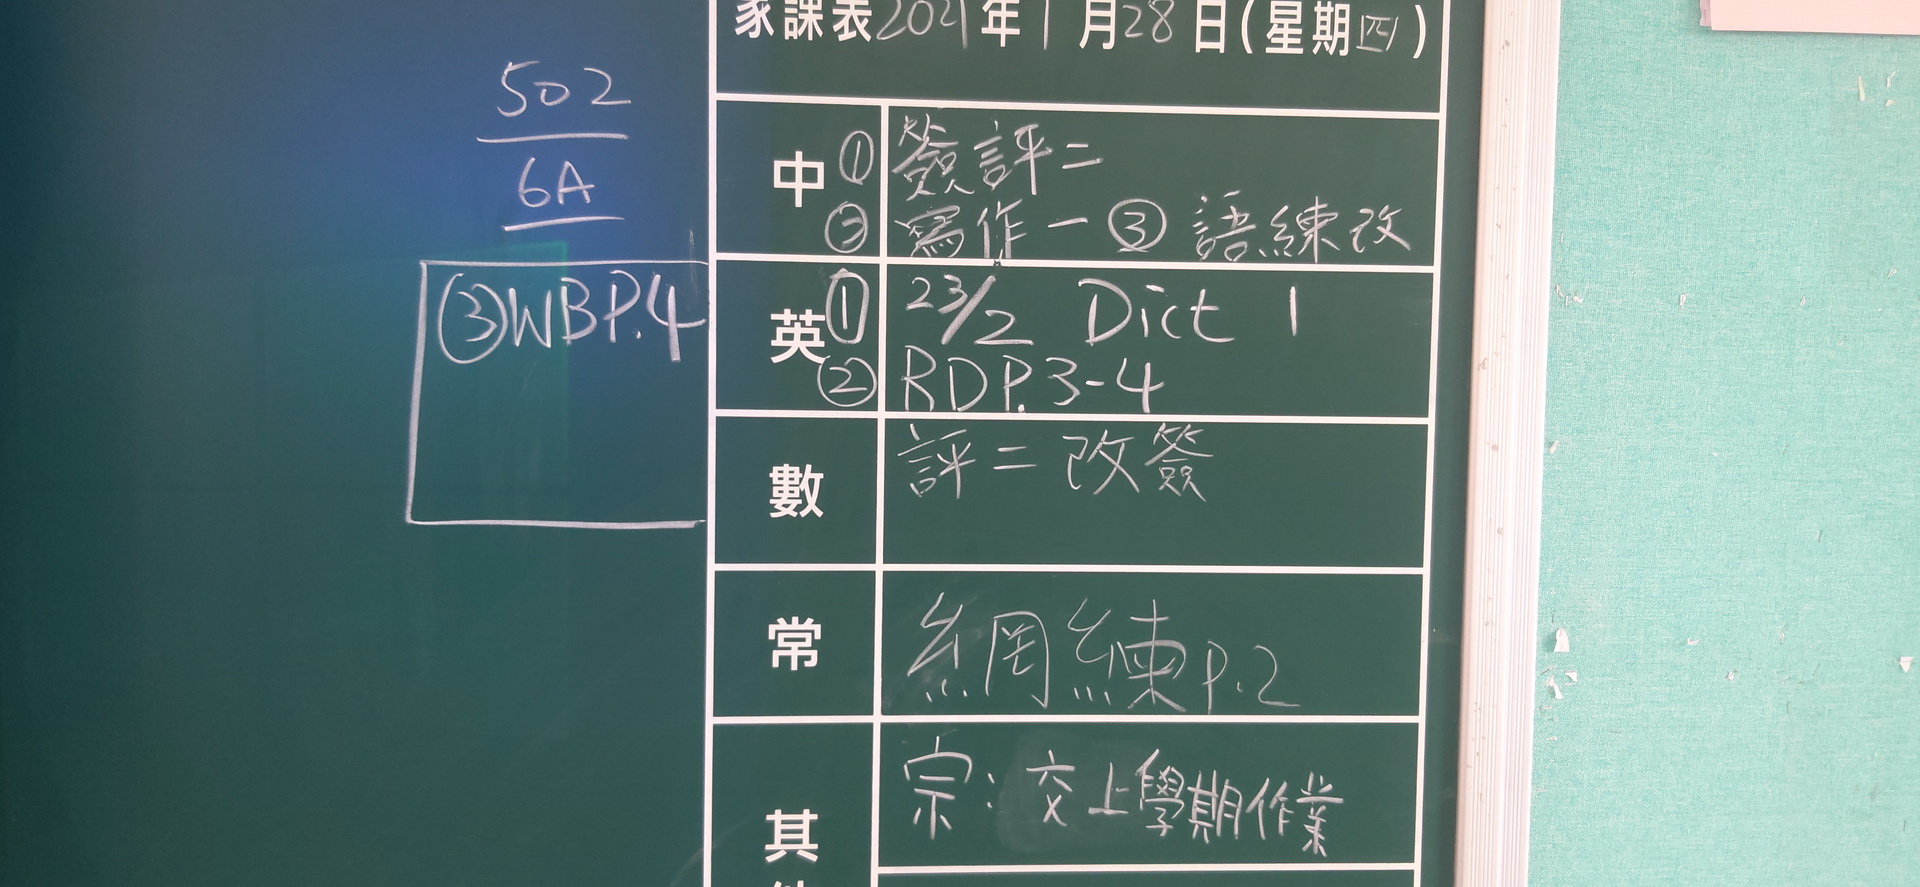 家課表2021年1月28日(星期四)
502
6A
中 ① 簽評二
② 寫作一 ③ 語練改
③WBP.4
英 ① 23/2 Dict 1
② RDP.3-4
數 評二改簽
常 網練P.2
其 宗:交上學期作業